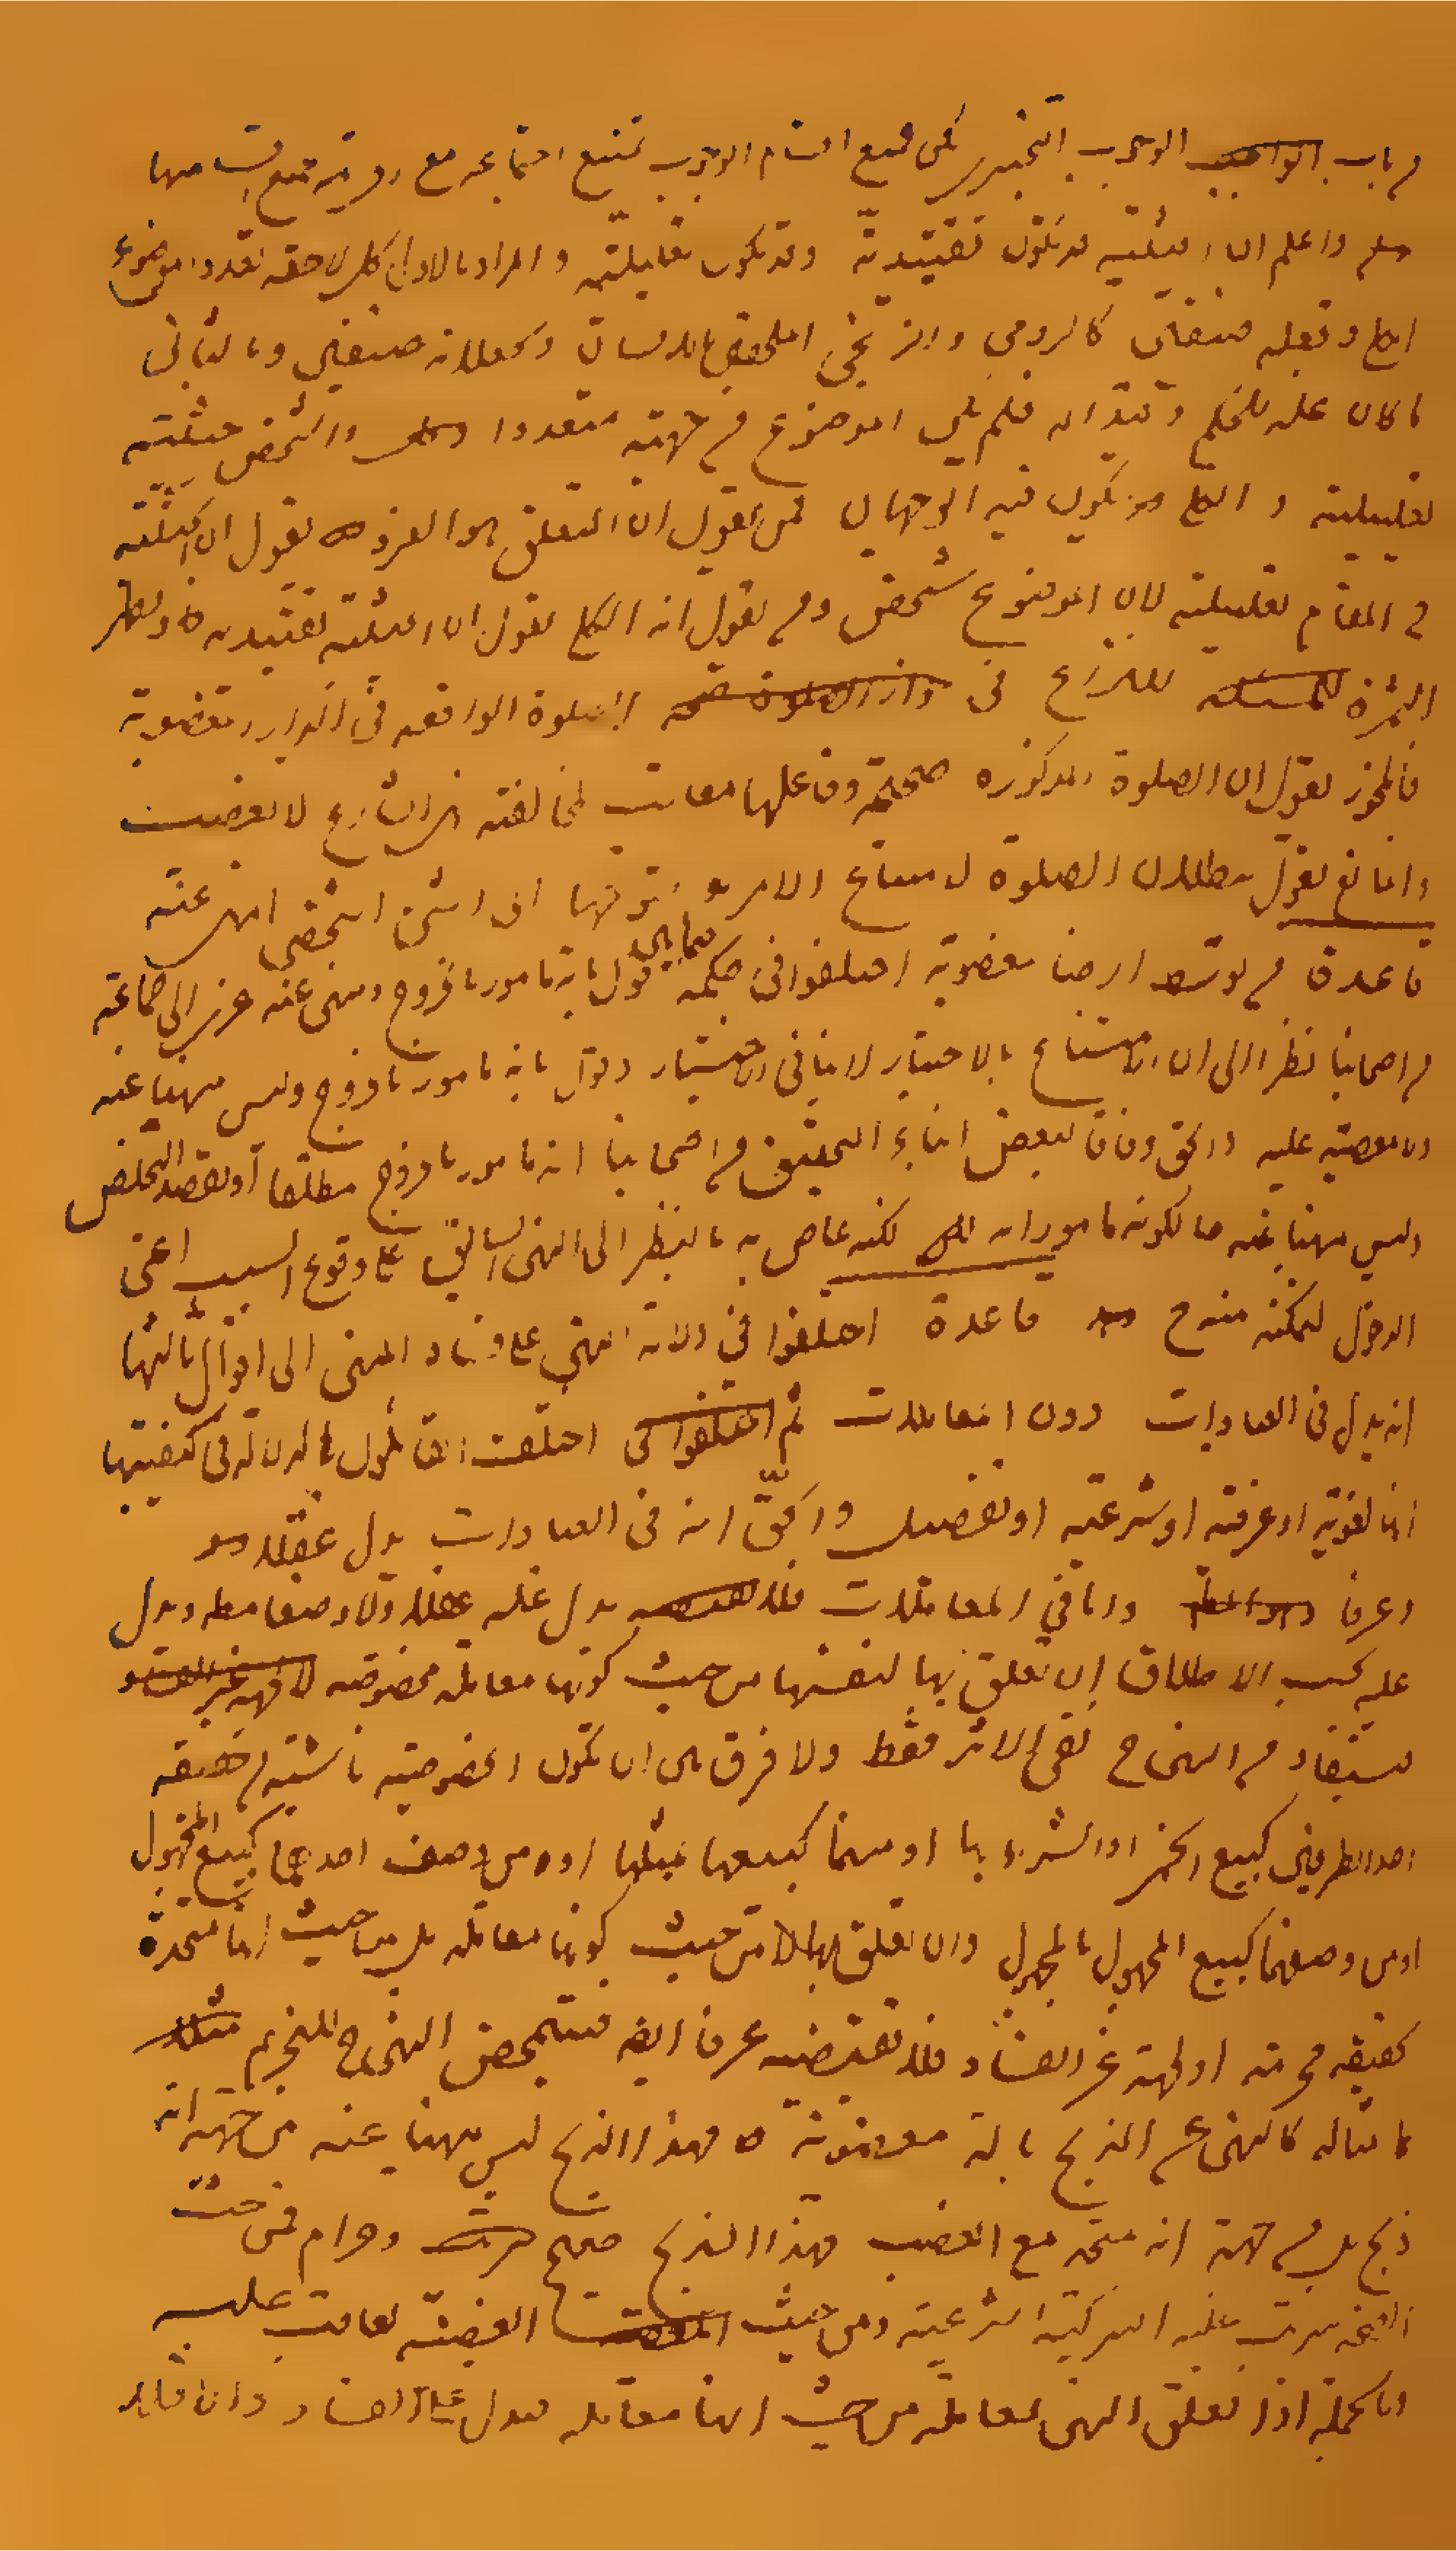 من باب الواجب الوجوب التخييري لكن جميع اقسام الوجوب يمتنع اجتماعه مع الحرمة بجميع اقسامها
واعلم ان الحيثية قد تكون تقييدية وقد تكون تعليلية والمراد بالاول كل لاحقة تعدد الموضوع
وتجعله صنفين كالرومي والزنجي الملحقين بالانسان وتجعلانه صنفين وبالثاني
ما كان علة للحكم وقيدا له فلم يكن الموضوع من جهته متعددا والشخص حيثيته
تعليلية و قد يكون فيه الوجهان فمن يقول ان المتعلق هو الفرد يقول ان الحيثية
في المقام تعليلية لان الموضوع شخص ومن يقول انه الكلي يقول ان الحيثية تقييدية ويظهر
الثمرة للمسئلة للنزاع في الصلوة الواقعة في الدار المغصوبة
فالمجوز يقول ان الصلوة المذكورة صحيحة وفاعلها معاقب لمخالفته نهي الشارع لا تغصب
والمانع يقول ببطلان الصلوة لامتناع الامر الشخصي المنهي عنه
قاعدة من توسط ارضا مغصوبة اختلفوا في حكمه قول بانه مامور بالخروج ومنهي عنه عزي الى جماعة
من اصحابنا نظرا الى ان الامتناع بالاختيار لا ينافي الاختيار وقول بانه مامور بالخروج وليس منهيا عنه
ولا معصية عليه والحق وفاقا لبعض ابناء التحقيق من اصحابنا انه مامور بالخروج مطلقا او بقصد التخلص
وليس منهيا عنه حالكونه مامورا به لكنه عاص به بالنظر الى النهي السابق على وقوع السبب اعني
الدخول لتمكنه منه ح قاعدة اختلفوا في دلالة النهي على فساد المنهي الى اقوال ثالثها
انه يدل في العبادات دون المعاملات ثم اختلفوا في اختلفت القائلون بالدلالة في كيفيتها
انها لغوية او عرفية او شرعية او تفصيل والحق انه في العبادات يدل عقلا
وعرفا واما في المعاملات فلا يدل عليه عقلا ولا وضعا مط ويدل
عليه بحسب الاطلاق ان تعلق بها لنفسها من حيث كونها معاملة مخصوصة
يستفاد من النهي ح نفي الاثر فقط ولا فرق بين ان تكون الخصوصية ناشئة من حقيقة
احد الطرفين كبيع الخمر او الشراء بها او منهما كبيعها بمثلها او من وصف احدهما كبيع المجهول
او من وصفهما كبيع المجهول بالمجهول وان تعلق بها لا من حيث كونها معاملة بل من حيث انها متحدة
بحقيقة محرمة او لجهة غير الفساد فلا تقتضيه عرفا ايضا فيتمحض النهي ح للتحريم مثلا
مثاله كالنهي عن الذبح بالة مغصوبة فهذا الذبح ليس منهيا عنه من جهة انه
ذبح بل من جهة انه متحد مع الغصب فهذا الذبح صحيح وحرام فمن حيث
يترتب عليه التزكية الشرعية ومن حيث الغصبية يعاقب عليه
وبالجملة اذا تعلق النهي لمعاملة من حيث انها معاملة فيدل على الفساد والا فلا